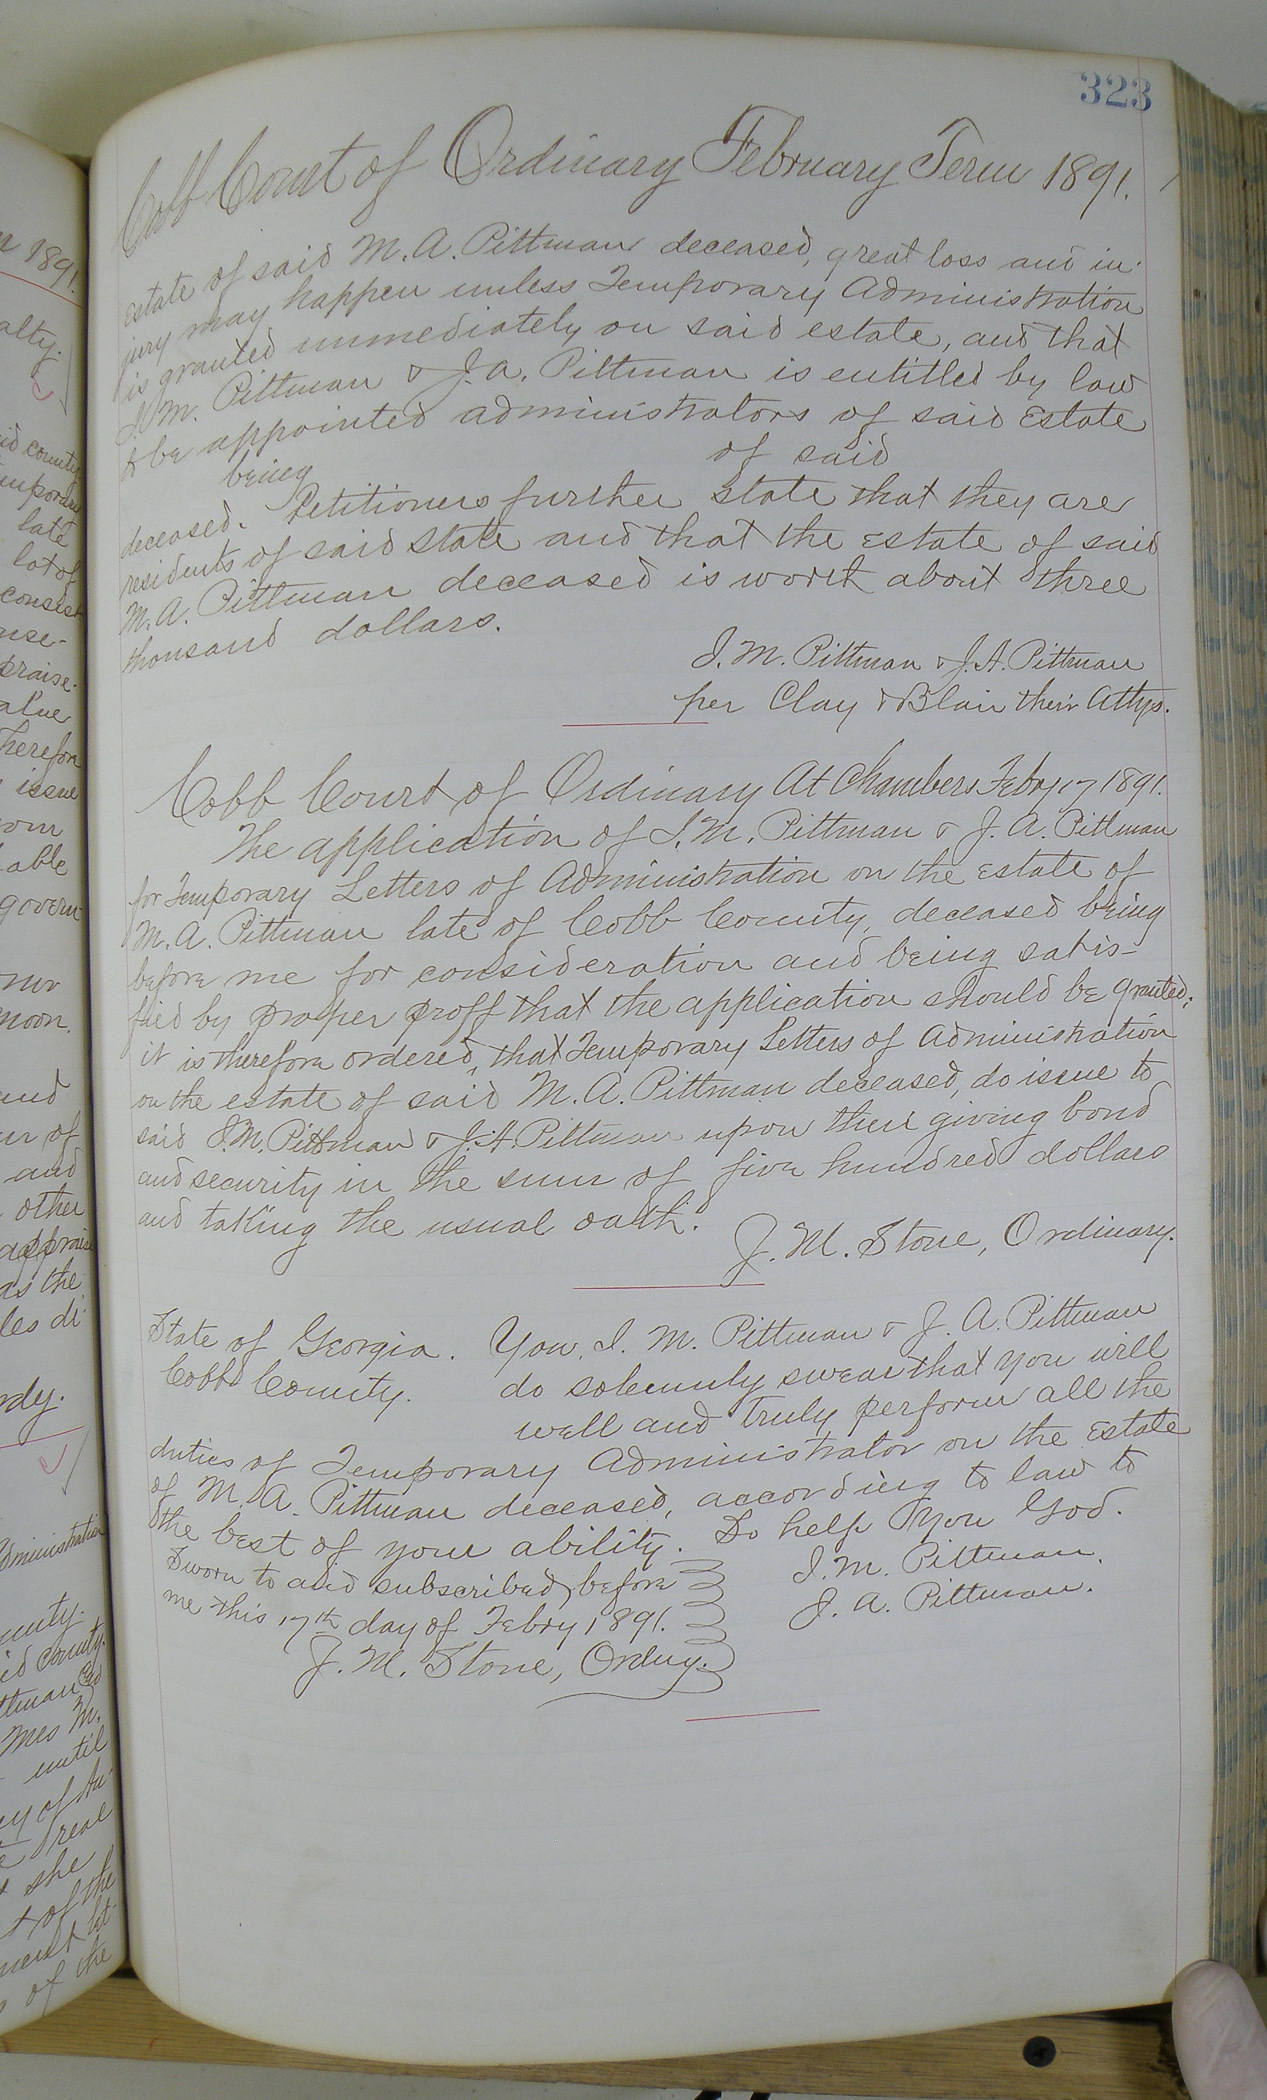 323
Cobb Court of Ordinary February Term 1891.
estate of said M. A. Pittman deceased, great loss and in-
jury may happen unless Temporary Administration
is granted immediately on said estate, and that
I. M. Pittman & J. A. Pittman is entitled by law
to be appointed administrators of said Estate
being of said
deceased. Petitioners further state that they are
residents of said state and that the estate of said
M. A. Pittman deceased is worth about three
thousand dollars.
I. M. Pittman & J. A. Pittman
per Clay & Blair their Attys.
Cobb Court of Ordinary At Chambers Febry 17 1891.
The application of I. M. Pittman & J. A. Pittman
for Temporary Letters of Administration on the estate of
M. A. Pittman late of Cobb County, deceased being
before me for consideration and being satis-
fied by proper proff that the application should be granted;
it is therefore ordered, that Temporary Letters of Administration
on the estate of said M. A. Pittman deceased, do issue to
said I. M. Pittman & J. A. Pittman upon their giving bond
and security in the sum of five hundred dollars
and taking the usual oath.
J. M. Stone, Ordinary.
State of Georgia. You, I. M. Pittman & J. A. Pittman
Cobb County. do solemnly swear that you will
well and truly perform all the
duties of Temporary Administrator on the Estate
of M. A. Pittman deceased, according to law to
the best of your ability. So help you God.
Sworn to and subscribed before I. M. Pittman.
me this 17th day of Febry 1891. J. A. Pittman.
J. M. Stone, Ordny.
1891.
alty.
id county
temporary
late
lot of
consist
praise-
alue
Therefore
issue
able
govern
moon.
and
other
as the
Administration
until
real
she
of the
of the